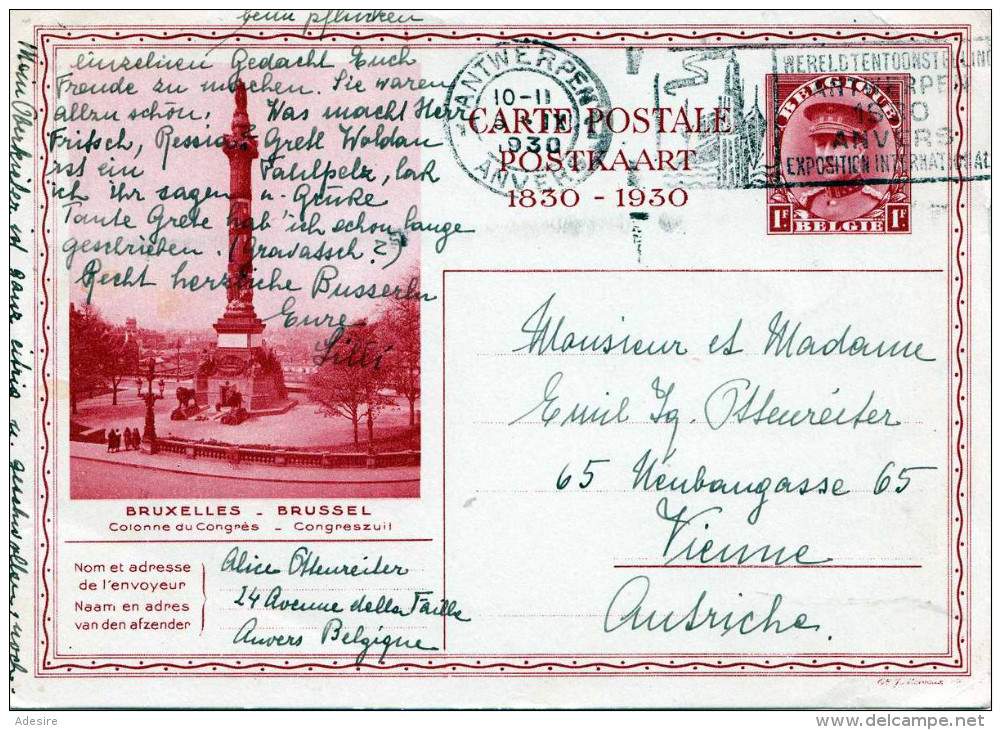 beim pflücken
einzelnen Gedacht Euch
Freude zu machen. Sie waren
allzu schön. Was macht Herr
Fritsch, Gretl Woldan
ist ein Fahlpelz, lass
ich ihr sagen u. Grüße
Tante Grete hab' ich schon lange
geschrieben.
Recht herzliche Busserln
Eure
Litti
Mein Oberkiefer ist ganz u. geschwollen noch.
ANTWERPEN
10-11
1930
ANVERS
WERELDTENTOONSTELLING
ANTWERPEN
1930
ANVERS
EXPOSITION INTERNATIONALE
CARTE POSTALE
POSTKAART
1830 - 1930
BELGIQUE
1F 1F.
BELGIE
Monsieur et Madame
Emil Ig. Ottenreiter
65 Neubaugasse 65
Vienne
Autriche.
BRUXELLES - BRUSSEL
Colonne du Congrès - Congreszuil
Nom et adresse
de l'envoyeur
Naam en adres
van den afzender
Alice Ottenreiter
24 Avenue della Faille
Anvers Belgique
Adesire
www.delcampe.net